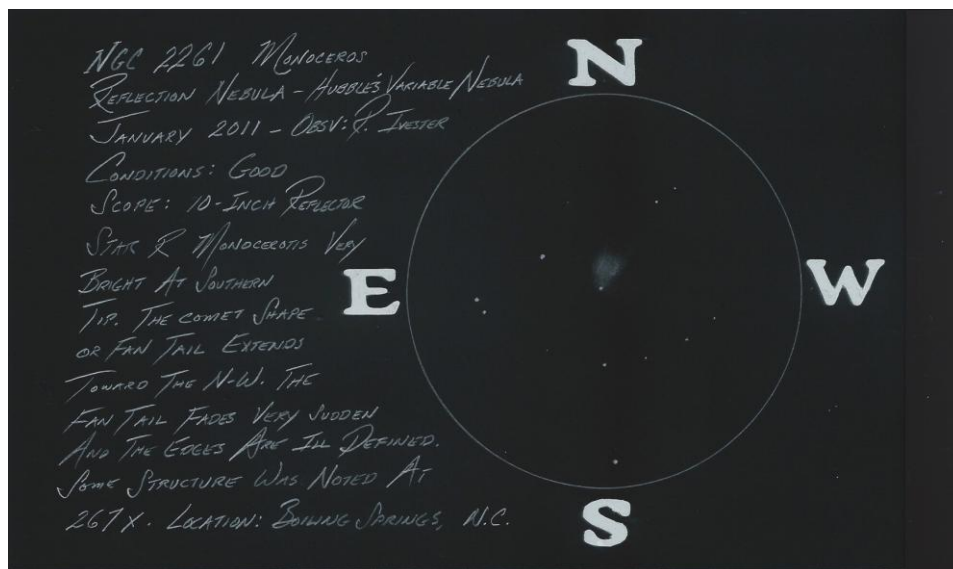 NGC 2261 MONOCEROS
REFLECTION NEBULA - HUBBLE'S VARIABLE NEBULA
JANUARY 2011 - OBSV: R. IVESTER
CONDITIONS: GOOD
SCOPE: 10-INCH REFLECTOR
STAR R MONOCEROTIS VERY
BRIGHT AT SOUTHERN
TIP. THE COMET SHAPE
OR FAN TAIL EXTENDS
TOWARD THE N-W. THE
FAN TAIL FADES VERY SUDDEN
AND THE EDGES ARE ILL DEFINED.
SOME STRUCTURE WAS NOTED AT
267X. LOCATION: BOILING SPRINGS, N.C.
N
E
W
S